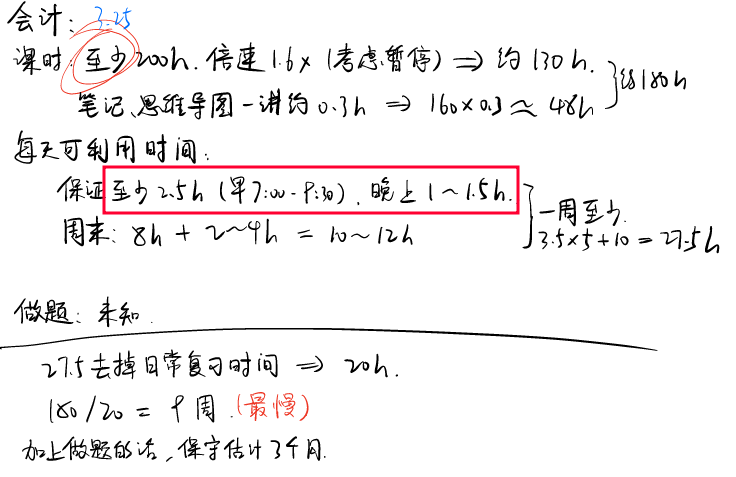 会计: 3.25
课时: 至少200h. 倍速1.6x (考虑暂停) ⇒ 约130h.
笔记、思维导图一讲约0.3h ⇒ 160×0.3≈48h } 约180h
每天可利用时间:
保证至少2.5h (早7:00-9:30), 晚上1~1.5h.
周末: 8h + 2~4h = 10~12h
} 一周至少.
3.5×5+10=27.5h
做题: 未知.
27.5去掉日常复习时间 ⇒ 20h.
180/20 = 9周.(最慢)
加上做题的话, 保守估计3个月.